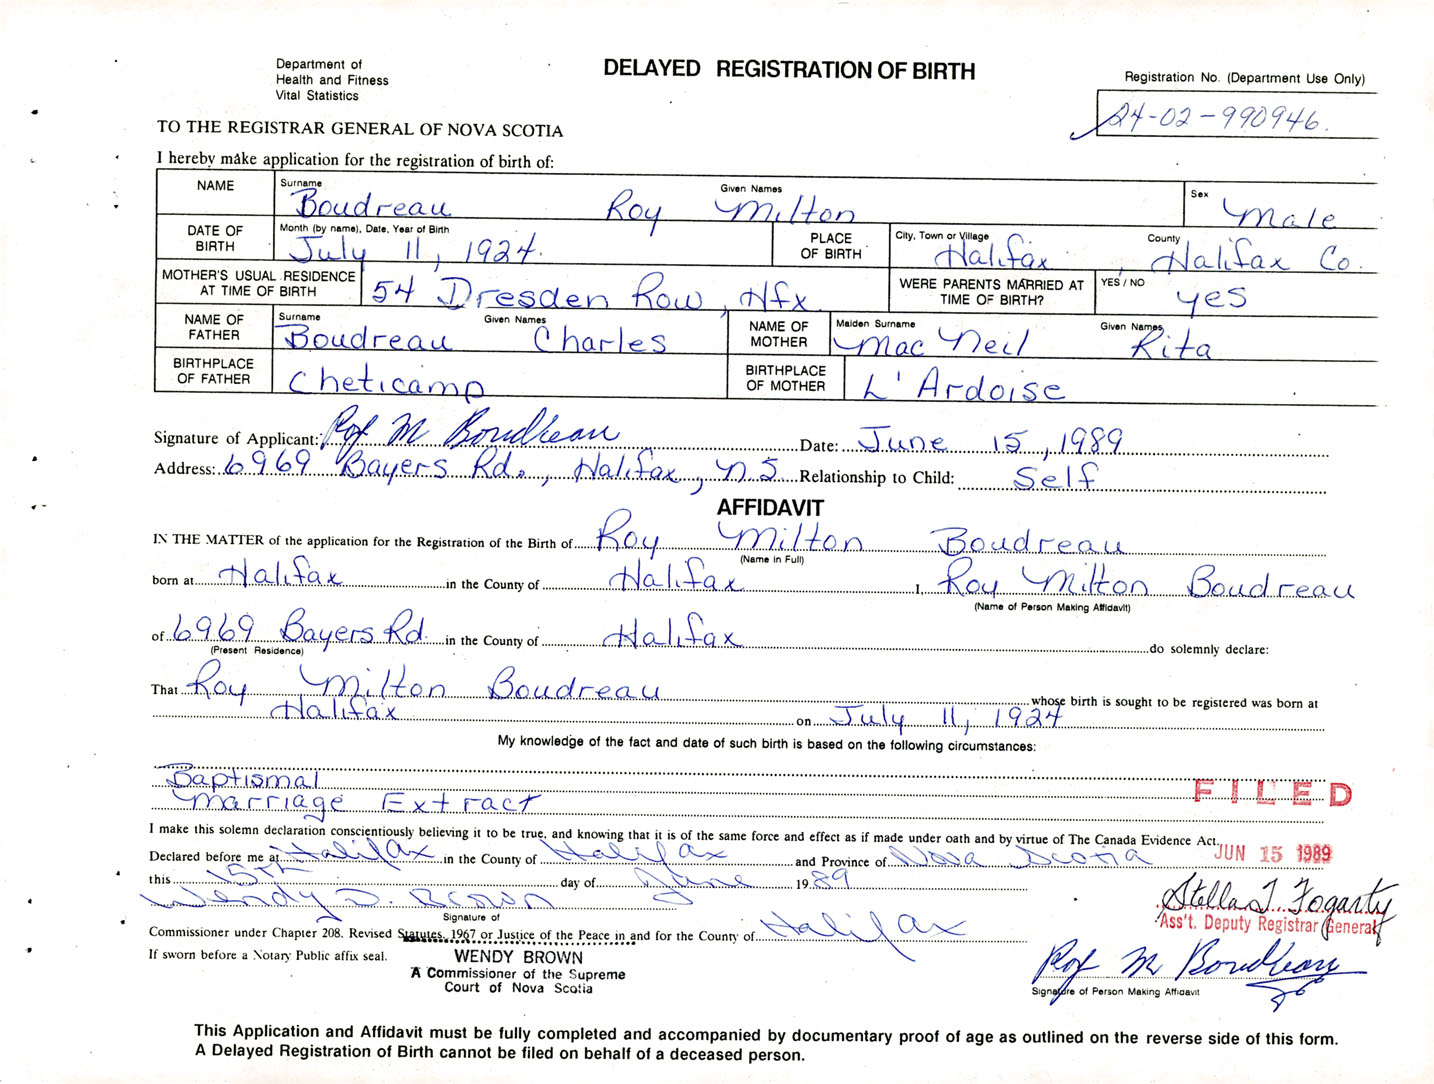 Department of
Health and Fitness
Vital Statistics
DELAYED REGISTRATION OF BIRTH
Registration No. (Department Use Only)
24-02-990946.
TO THE REGISTRAR GENERAL OF NOVA SCOTIA
I hereby make application for the registration of birth of:
NAME Surname Boudreau Given Names Roy Milton Sex Male
DATE OF BIRTH Month (by name), Date, Year of Birth July 11, 1924. PLACE OF BIRTH City, Town or Village Halifax, County Halifax Co.
MOTHER'S USUAL RESIDENCE AT TIME OF BIRTH 54 Dresden Row, Hfx WERE PARENTS MARRIED AT TIME OF BIRTH? YES / NO yes
NAME OF FATHER Surname Boudreau Given Names Charles NAME OF MOTHER Maiden Surname Mac Neil Given Names Rita
BIRTHPLACE OF FATHER Cheticamp BIRTHPLACE OF MOTHER L'Ardoise
Signature of Applicant: Roy M Boudreau Date: June 15, 1989
Address: 6969 Bayers Rd., Halifax, N.S. Relationship to Child: Self
AFFIDAVIT
IN THE MATTER of the application for the Registration of the Birth of Roy Milton Boudreau
(Name in Full)
born at Halifax in the County of Halifax I, Roy Milton Boudreau
(Name of Person Making Affidavit)
of 6969 Bayers Rd. in the County of Halifax do solemnly declare:
(Present Residence)
That Roy Milton Boudreau whose birth is sought to be registered was born at
Halifax on July 11, 1924
My knowledge of the fact and date of such birth is based on the following circumstances:
Baptismal
Marriage Extract
FILED
I make this solemn declaration conscientiously believing it to be true, and knowing that it is of the same force and effect as if made under oath and by virtue of The Canada Evidence Act.
JUN 15 1989
Declared before me at Halifax in the County of Halifax and Province of Nova Scotia
this 15th day of June 1989
Wendy D. Brown
Signature of
Stella T. Fogarty
Ass't. Deputy Registrar General
Commissioner under Chapter 208. Revised Statutes, 1967 or Justice of the Peace in and for the County of Halifax
If sworn before a Notary Public affix seal.
WENDY BROWN
A Commissioner of the Supreme
Court of Nova Scotia
Roy M Boudreau
Signature of Person Making Affidavit
This Application and Affidavit must be fully completed and accompanied by documentary proof of age as outlined on the reverse side of this form.
A Delayed Registration of Birth cannot be filed on behalf of a deceased person.